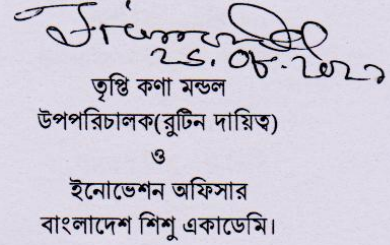 তৃপ্তি কণা মন্ডল
উপপরিচালক(রুটিন দায়িত্ব)
ও
ইনোভেশন অফিসার
বাংলাদেশ শিশু একাডেমি।